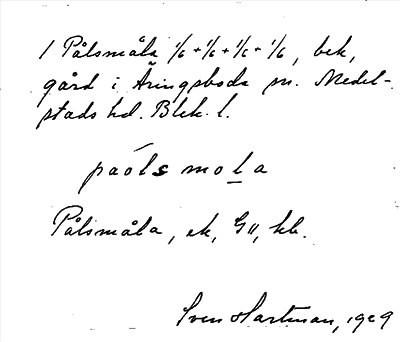 1 Pålsmåla 1/6 + 1/6 + 1/6 + 1/6, bek,
gård i Äringsboda sn. Medel-
stads hd. Blek. l.
páols mola
Pålsmåla, ek, G11, kb.
Sven Hartman, 1929